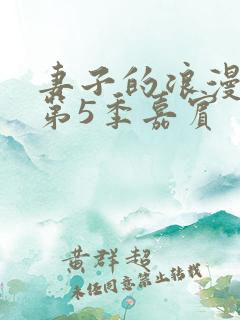 妻子的浪漫
第5季嘉宾
黄群超
未经同意禁止转载